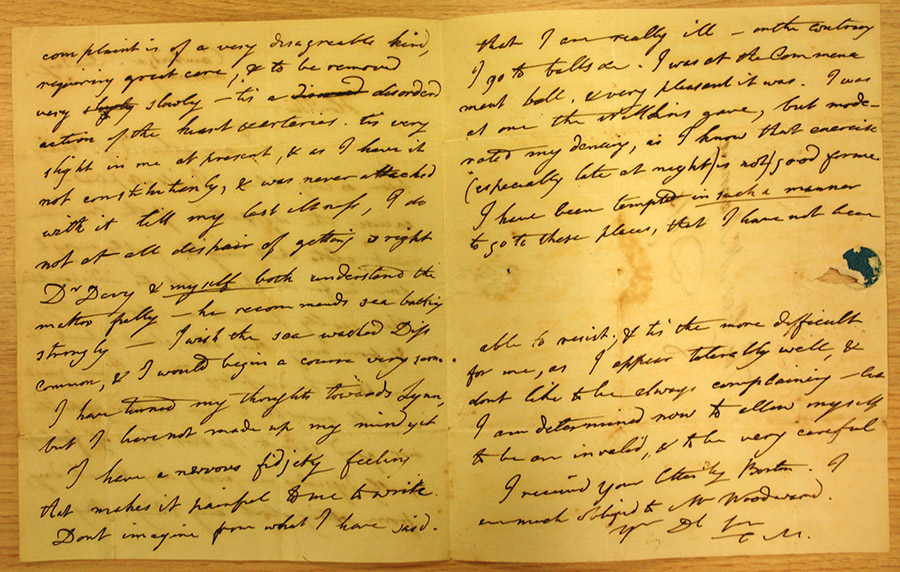 complaint is of a very disagreable kind,
requiring great care, & to be removed
very slowly – tis a disorder'd
action of the heart & arteries. tis very
slight in me at present, & as I have it
not constitutionly, & was never attacked
with it till my last illness, I do
not at all dispair of getting right
Dr Davy & myself both understand the
matter fully – he recommends sea bathing
strongly – I wish the sea washed Diss
common, & I would begin a course very soon.
I have turned my thoughts towards Lynn,
but I have not made up my mind yet
I have a nervous fidjety feeling
that makes it painful to me to write.
Dont imagine from what I have said.
that I am really ill – on the contrary
I go to balls &c. I was at the Commence
ment ball, & very pleasant it was. I was
at one the Wilkins gave, but mode-
rated my dancing, as I know that exercise
(especially late at night) is not good for me
I have been tempted in such a manner
to go to these places, that I have not been
able to resist, & tis the more difficult
for me, as I appear tolerably well, &
dont like to be always complaining – but
I am determined now to allow myself
to be an invalid, & to be very careful
I received your letter by Burton. I
am much obliged to Mr Woodward.
Yr
M.